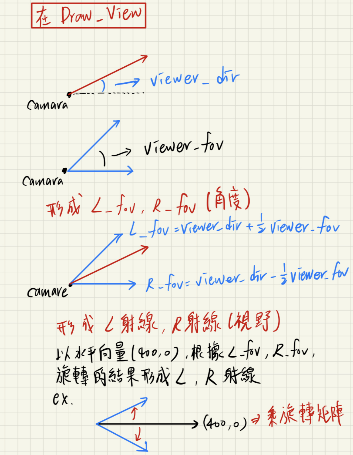 在 Draw_View
viewer_dir
Camara
viewer_fov
Camara
形成 L_fov, R_fov (角度)
L_fov = viewer_dir + 1/2 viewer_fov
R_fov = viewer_dir - 1/2 viewer_fov
Camare
形成 L 射線, R 射線 (視野)
以水平向量(400,0), 根據 L_fov, R_fov,
旋轉的結果形成 L, R 射線
ex.
(400,0) ⇒ 乘旋轉矩陣